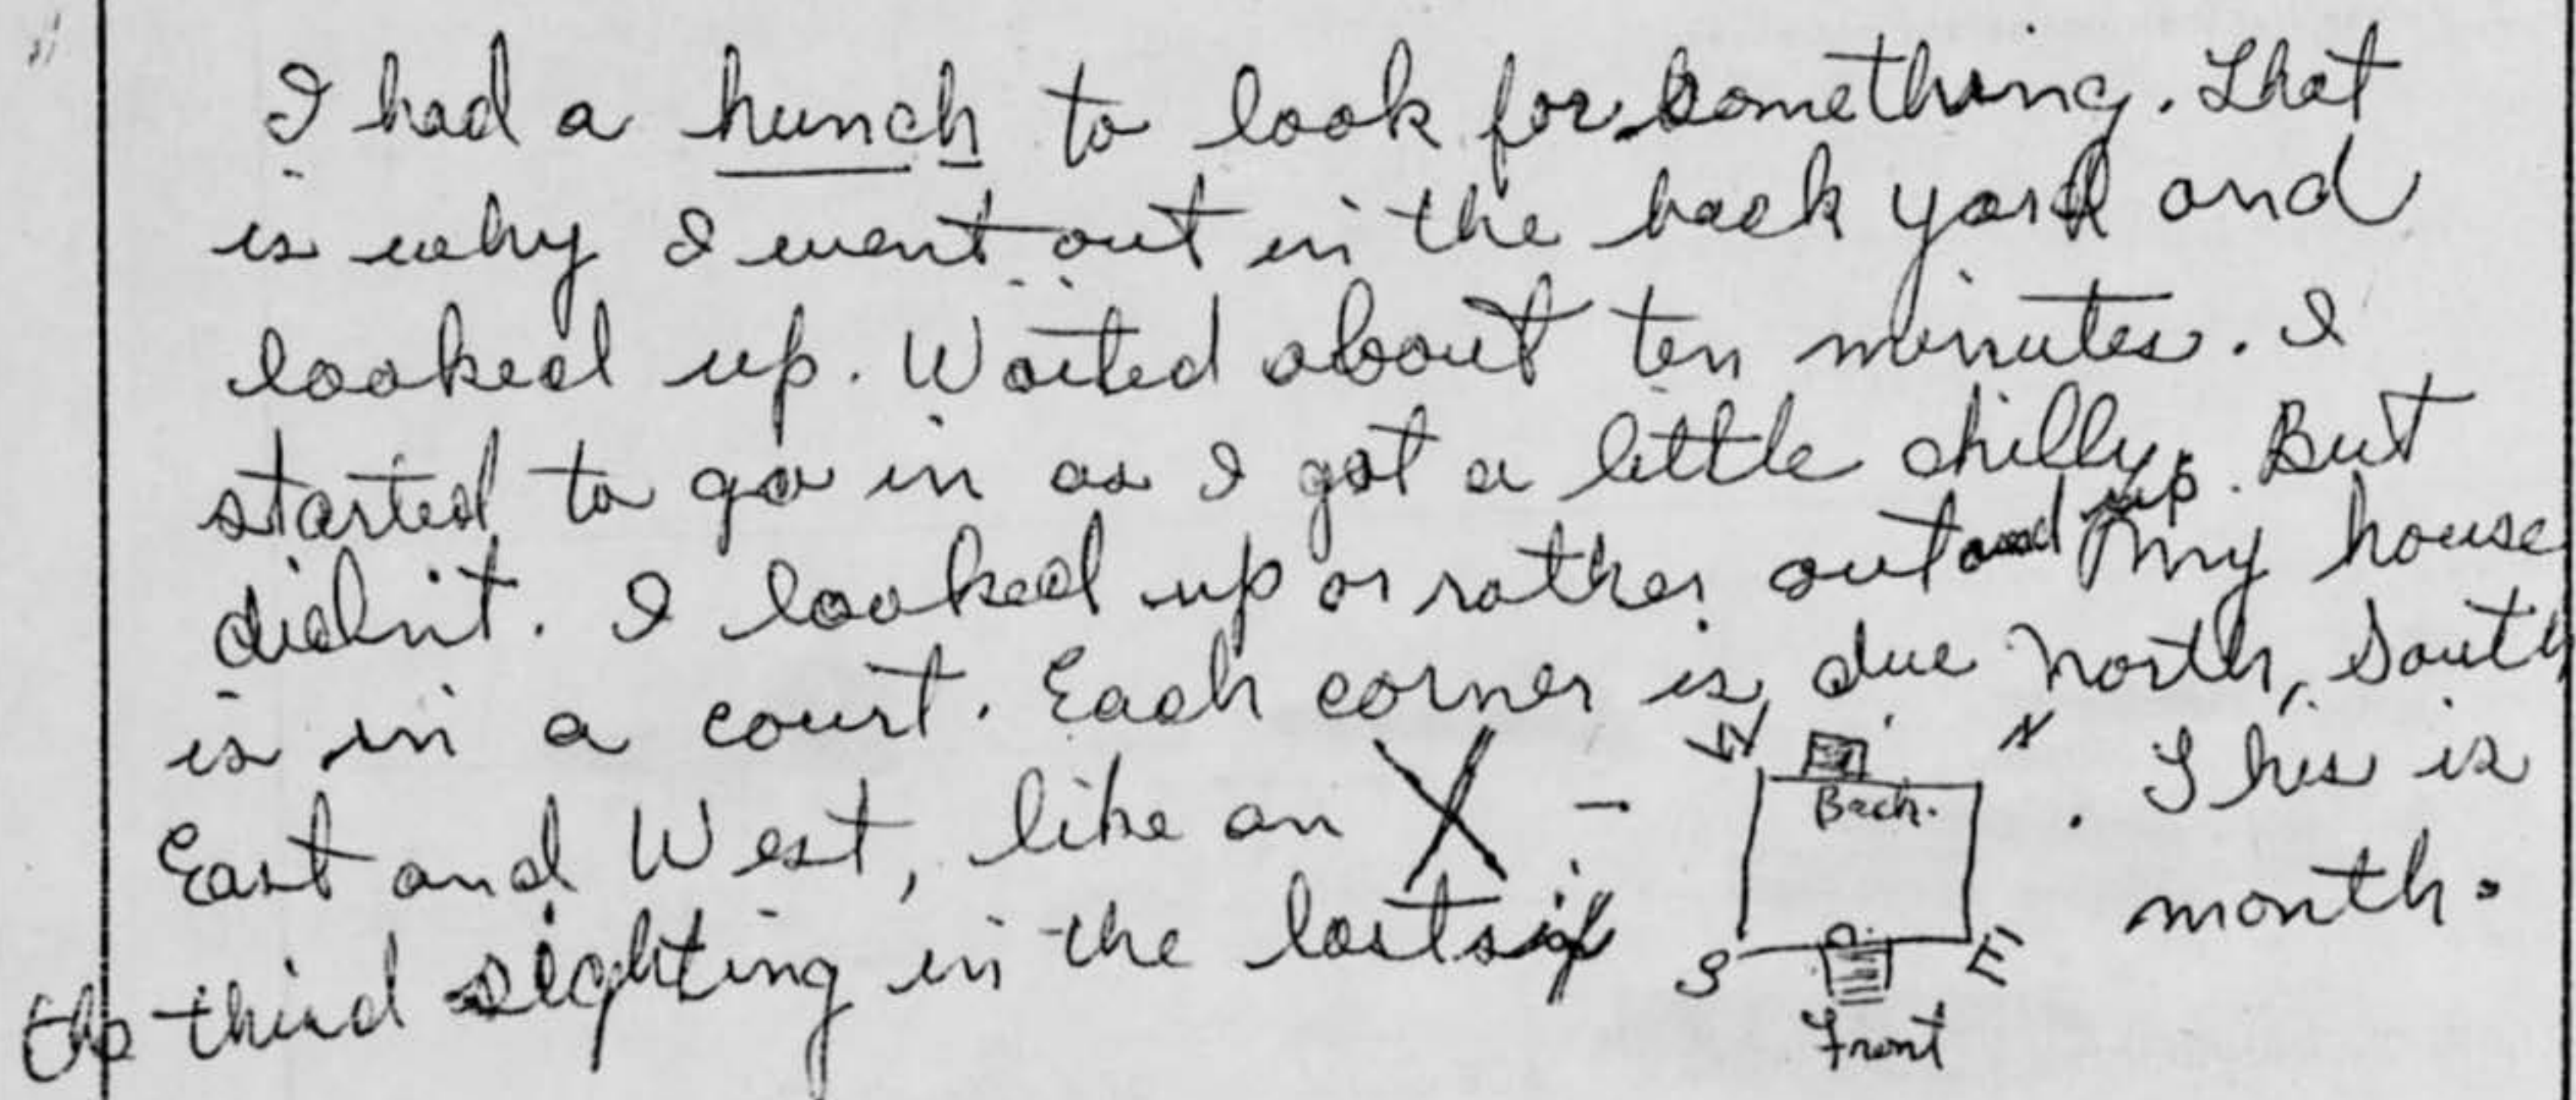 I had a hunch to look for something. That
is why I went out in the back yard and
looked up. Waited about ten minutes. I
started to go in as I got a little chilly. But
didn't. I looked up or rather out and up. My house
is in a court. Each corner is due North, South
East and West, like an X - . This is
W N
Back.
S E
Front
the third sighting in the last six month.